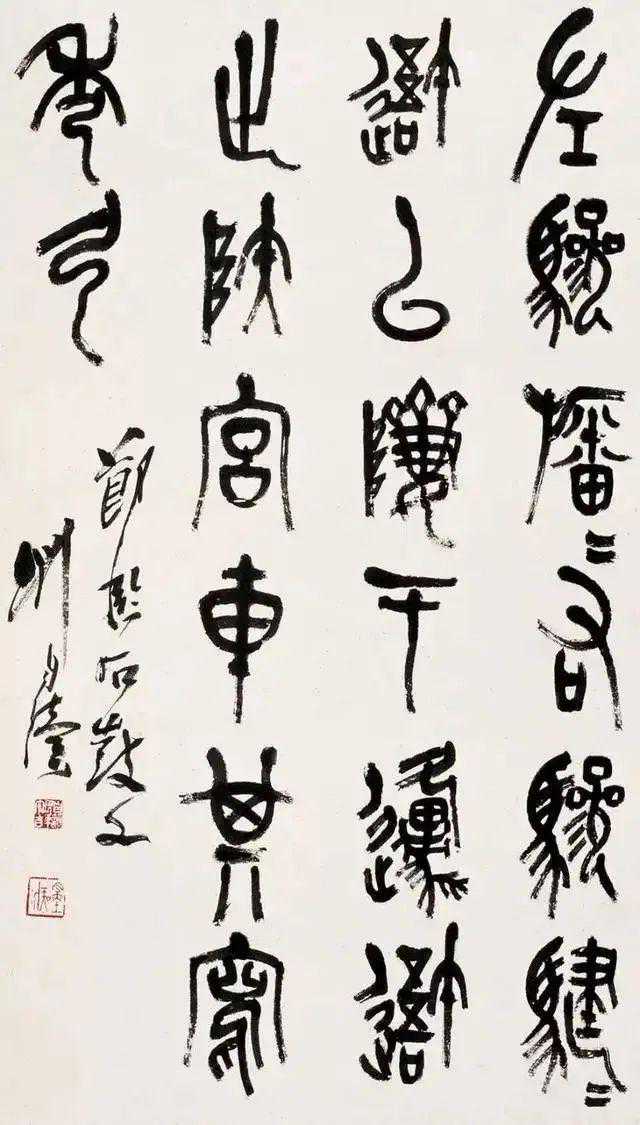 左驂旛〻右驂騝〻
以隮于邍
止陕宮車其寫
秀弓
節臨石鼓文